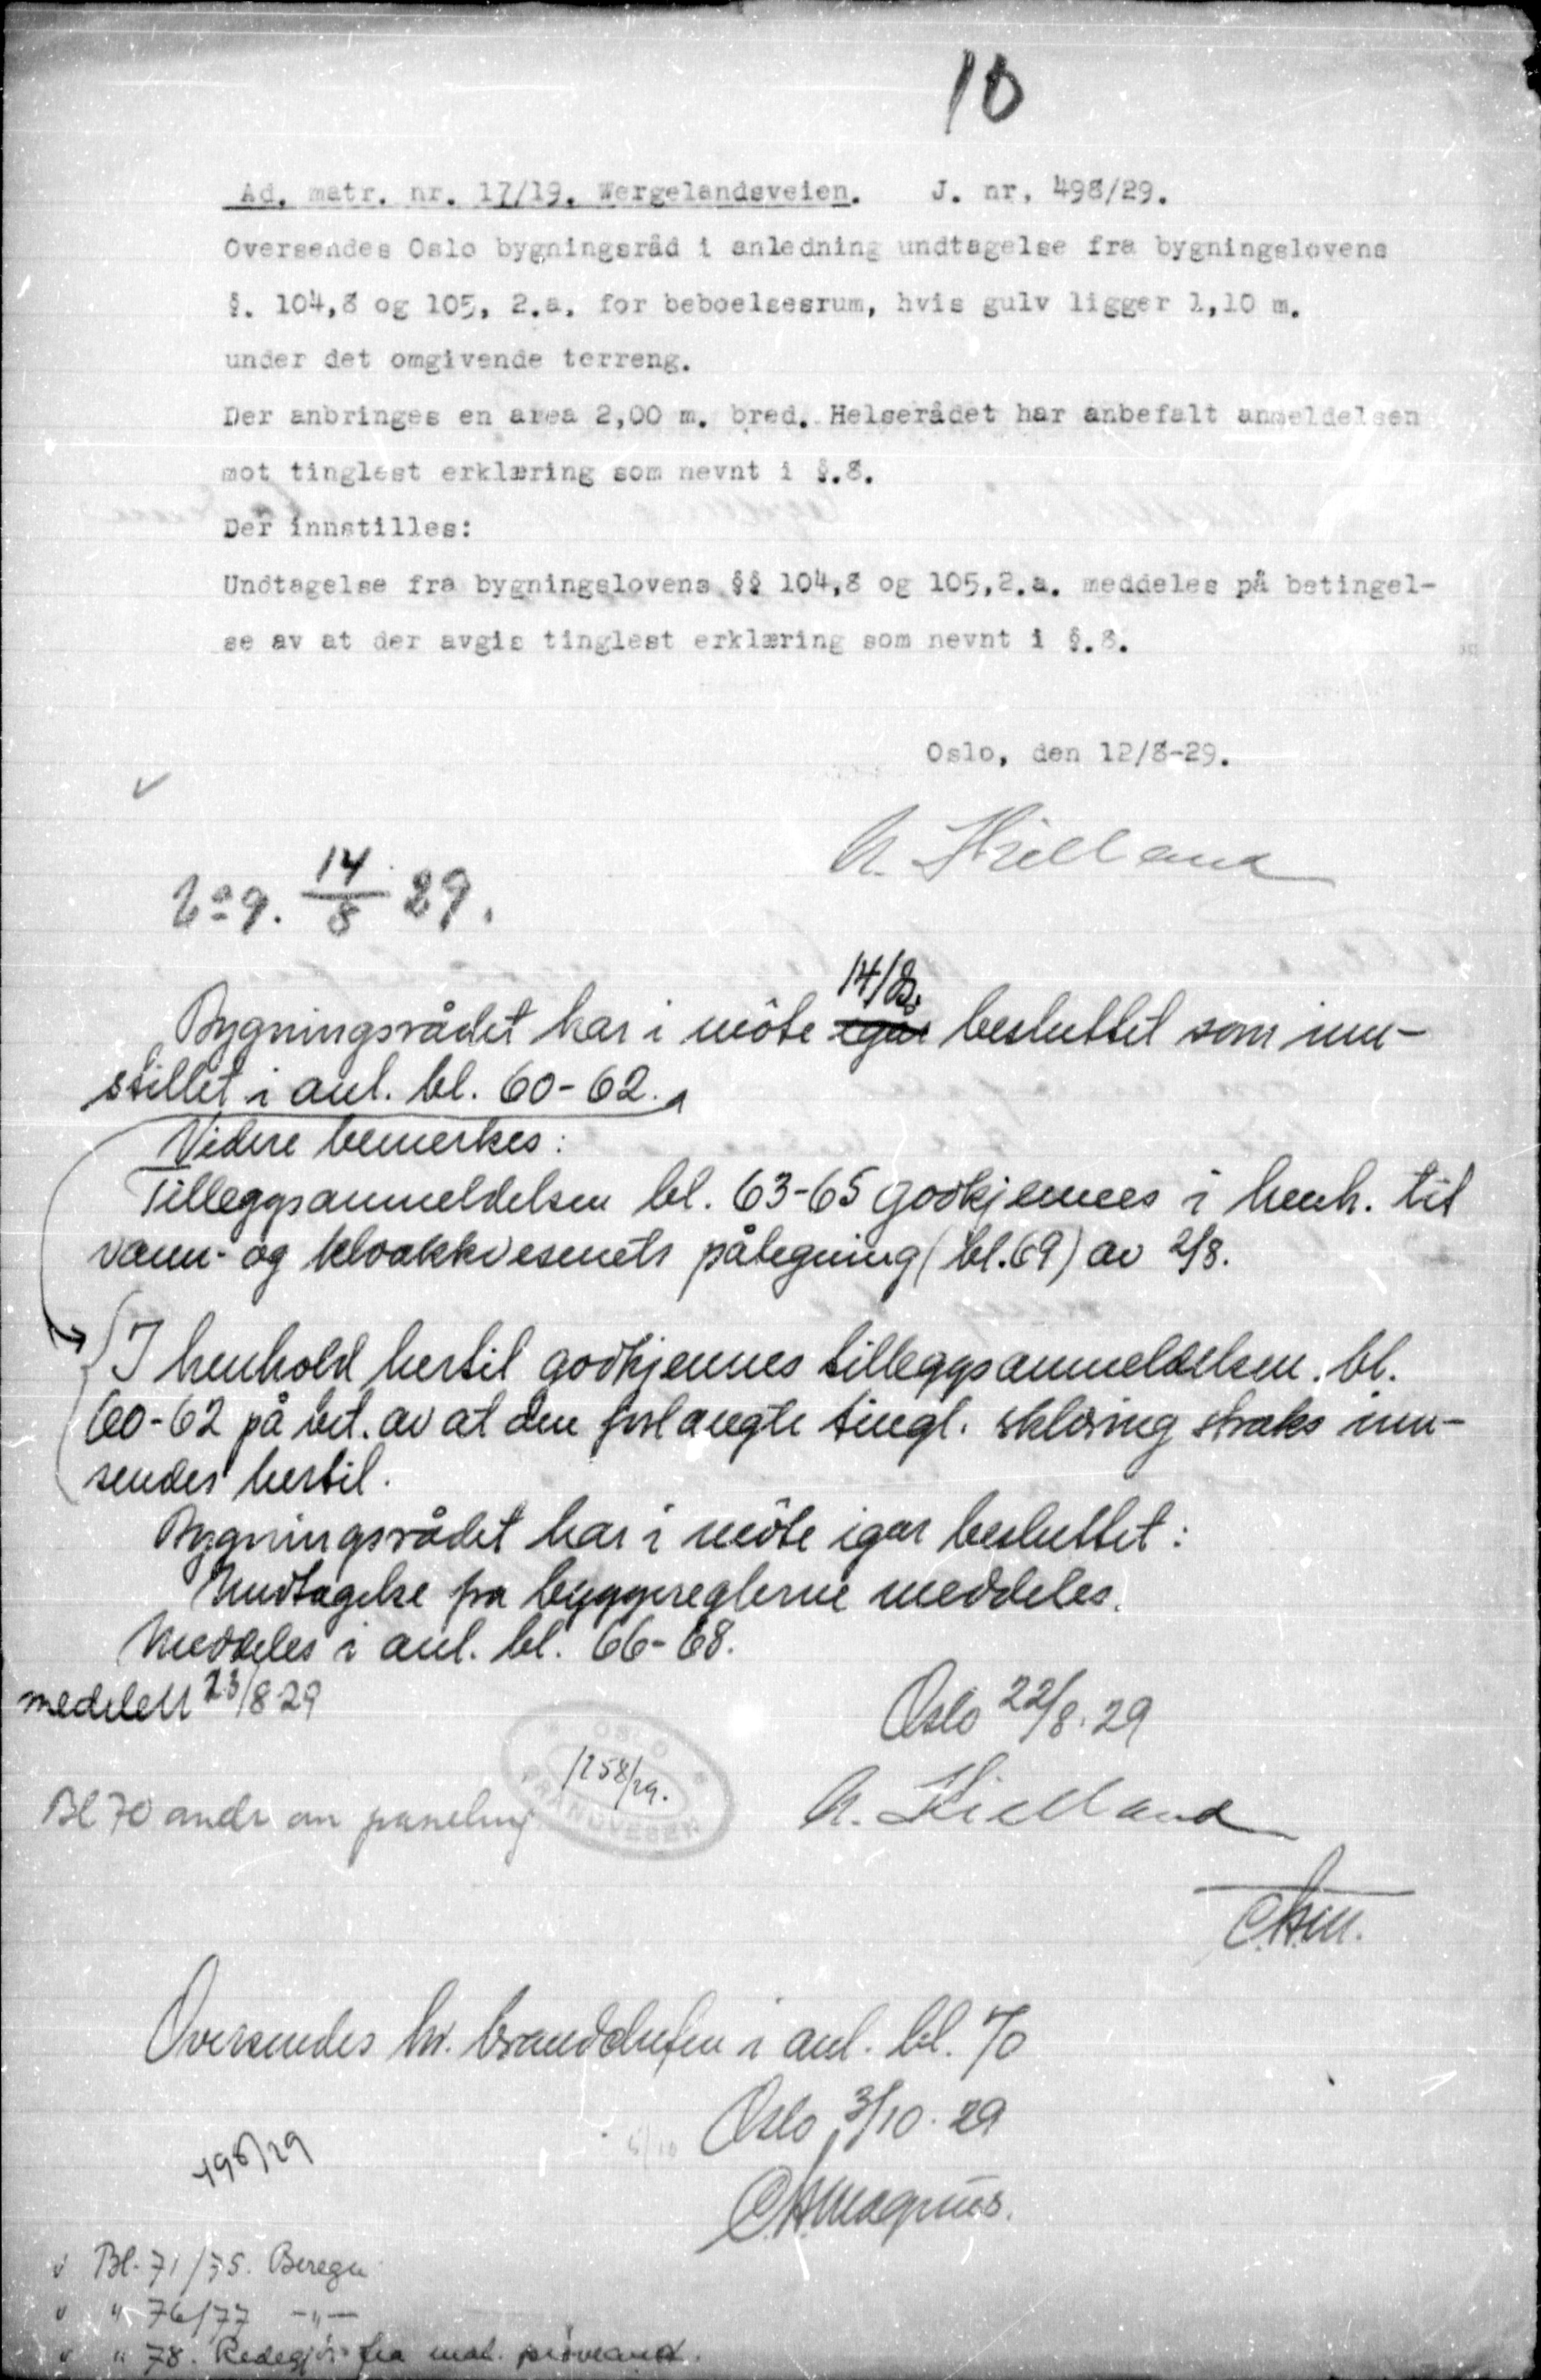 10
Ad. matr. nr. 17/19. Wergelandsveien. J. nr. 498/29.
Oversendes Oslo bygningsråd i anledning undtagelse fra bygningslovens
§. 104,8 og 105, 2.a. for beboelsesrum, hvis gulv ligger 1,10 m.
under det omgivende terreng.
Der anbringes en area 2,00 m. bred. Helserådet har anbefalt anmeldelsen
mot tinglest erklæring som nevnt i §.8.
Der innstilles:
Undtagelse fra bygningslovens §§ 104,8 og 105,2.a. meddeles på betingel-
se av at der avgis tinglest erklæring som nevnt i §.8.
Oslo, den 12/8-29.
N. Kielland
14/8 29.
14/8.
Bygningsrådet har i möte igår besluttet som inn-
stillet i anl. bl. 60-62.
Videre bemerkes:
Tilleggsanmeldelsen bl. 63-65 godkjennes i henh. til
vann- og kloakkvesenets påtegning (bl.69) av 2/8.
I henhold hertil godkjennes tilleggsanmeldelsen. bl.
60-62 på bet. av at den forlangte tingl. erklæring straks inn-
sendes hertil.
Bygningsrådet har i möte igår besluttet:
Undtagelse fra byggereglerne meddeles.
Meddeles i anl. bl. 66-68.
meddelt 23/8 29
Oslo 22/8. 29
OSLO BRANDVESEN
1258/29.
Bl 70 andr om paneling
N. Kielland
C.H.M.
Oversendes hr. brandchefen i anl. bl. 70
Oslo 3/10. 29
498/29
C.H.Magnus.
Bl. 71/75. Beregn
" 76/77 -"-
" 78. Redegjör fra mat. prøveanst.